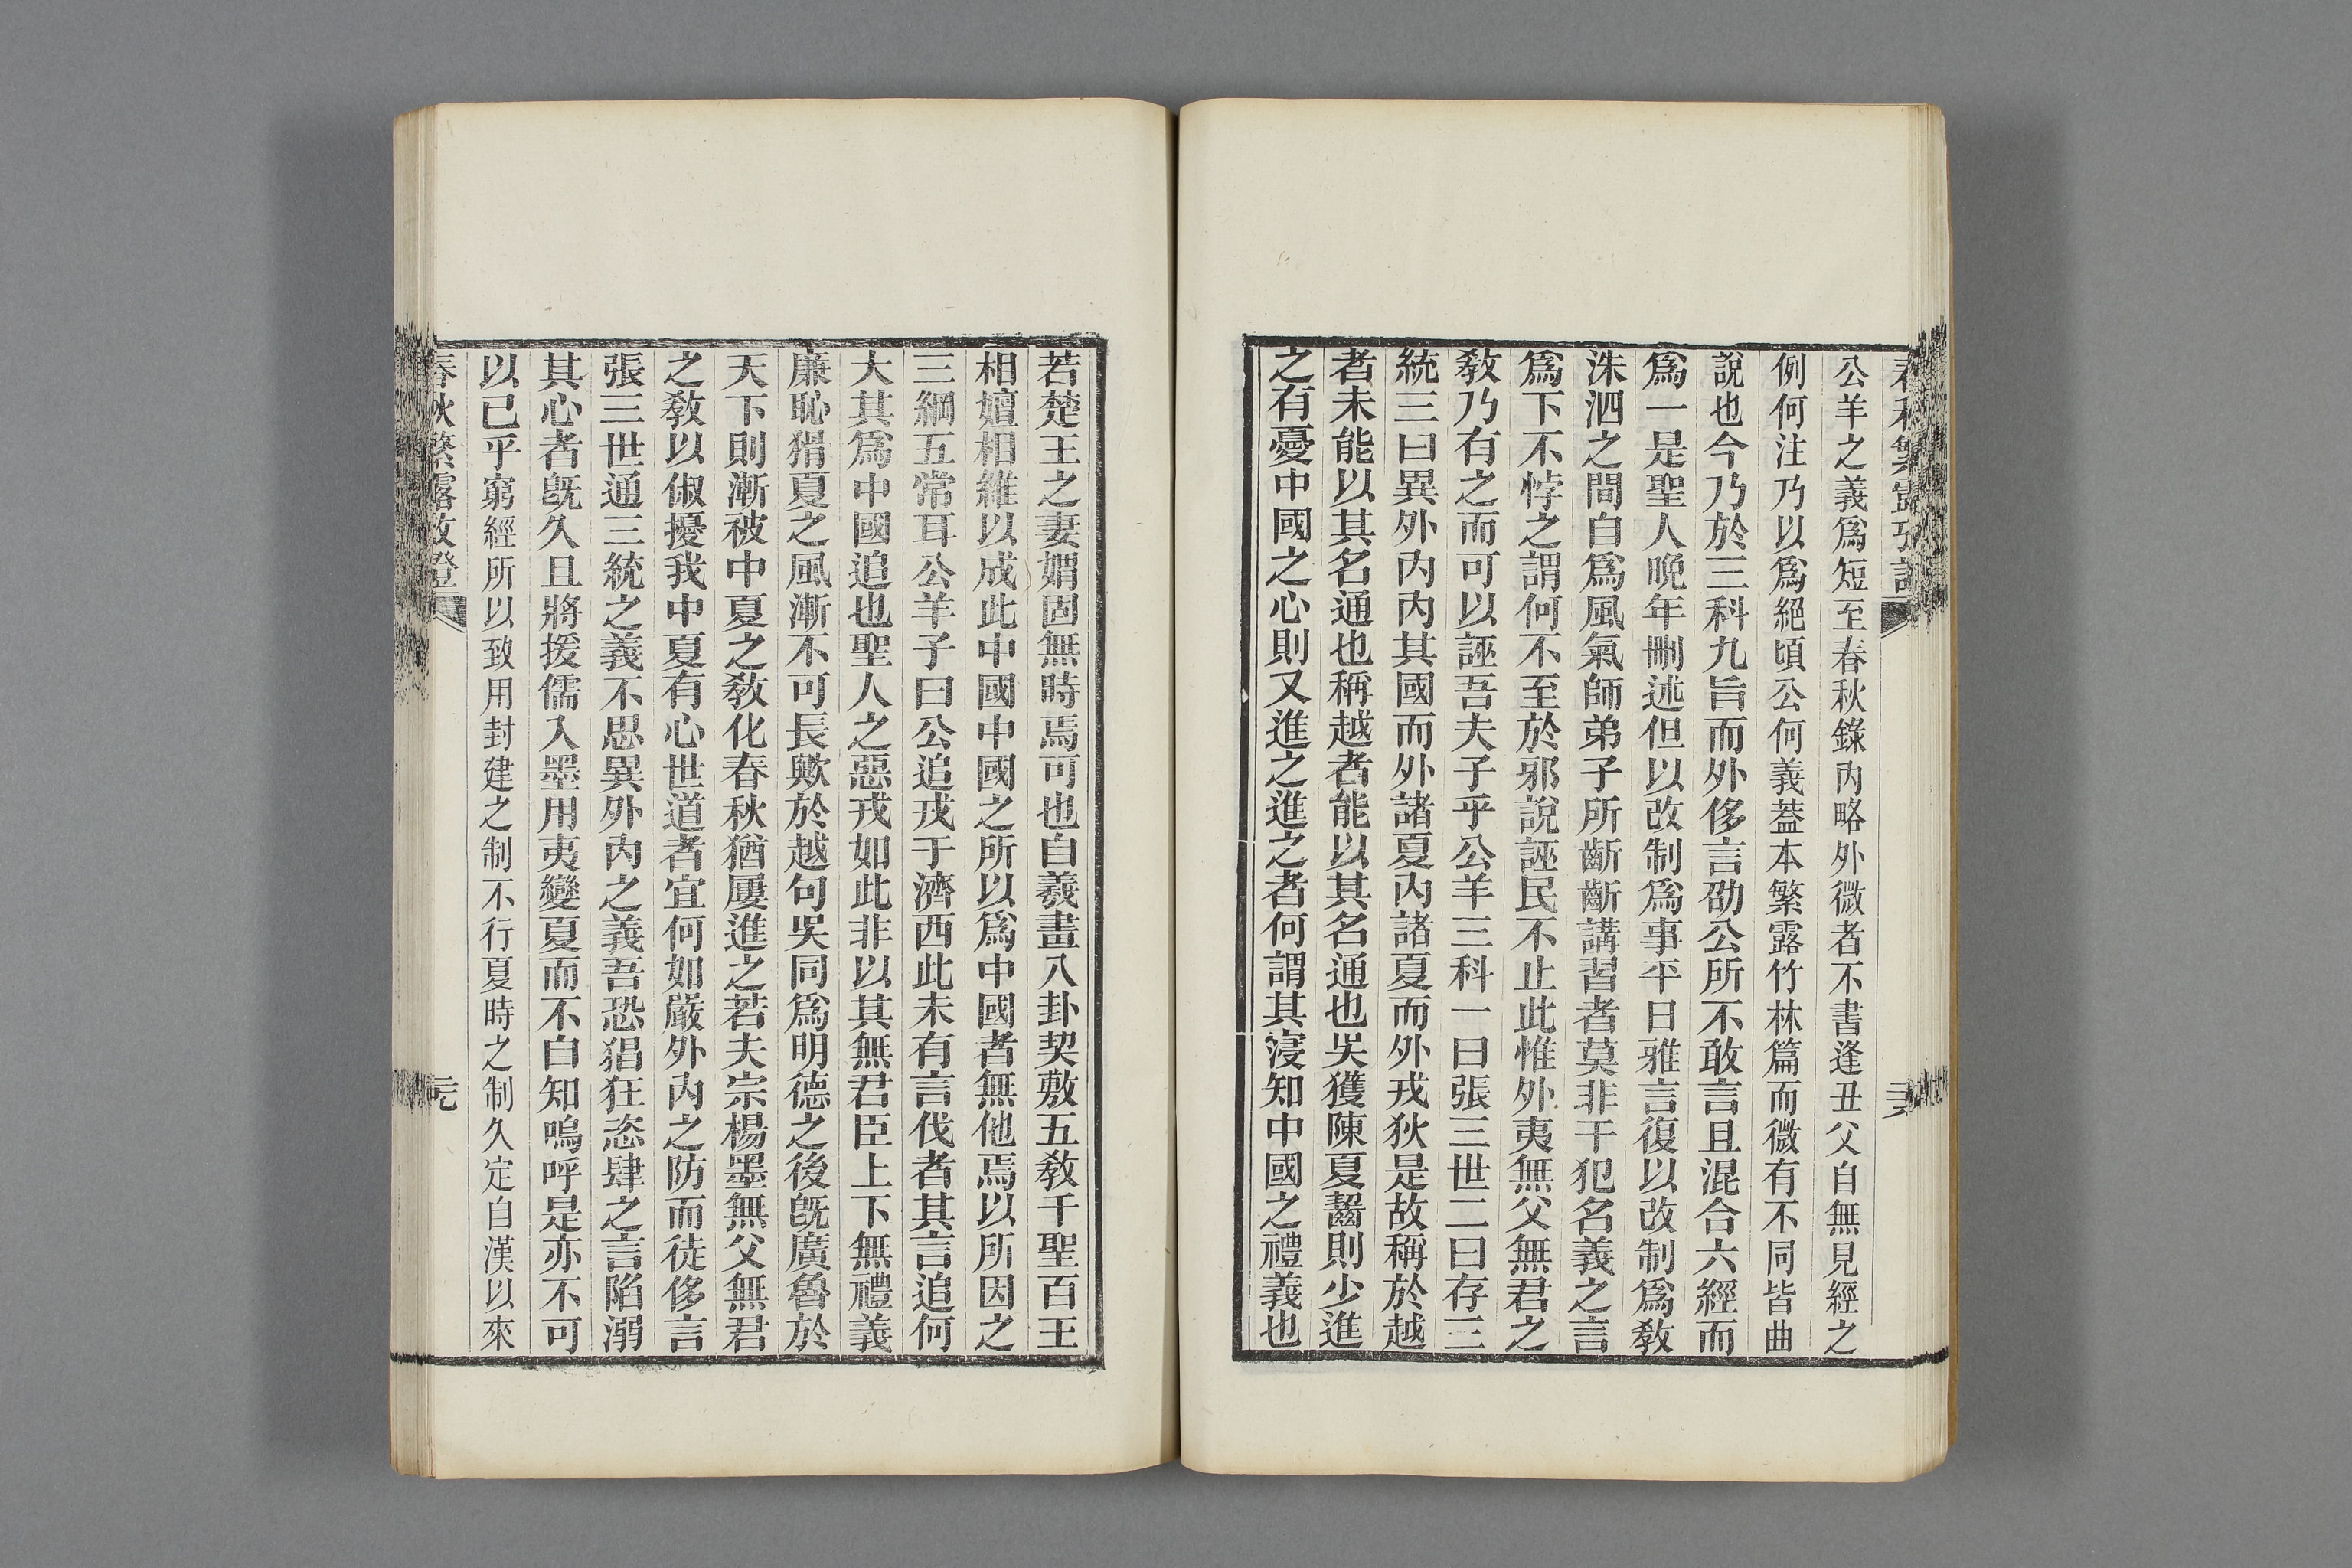 公羊之義爲短至春秋錄內略外微者不書逢丑父自無見經之
例何注乃以爲絕頃公何義葢本繁露竹林篇而微有不同皆曲
說也今乃於三科九旨而外侈言劭公所不敢言且混合六經而
爲一是聖人晚年刪述但以改制爲事平日雅言復以改制爲敎
洙泗之間自爲風氣師弟子所齗齗講習者莫非干犯名義之言
爲下不悖之謂何不至於邪說誣民不止此惟外夷無父無君之
敎乃有之而可以誣吾夫子乎公羊三科一曰張三世二曰存三
統三曰異外內內其國而外諸夏內諸夏而外戎狄是故稱於越
者未能以其名通也稱越者能以其名通也吳獲陳夏齧則少進
之有憂中國之心則又進之進之者何謂其寖知中國之禮義也
若楚王之妻媦固無時焉可也自羲畫八卦契敷五敎千聖百王
相嬗相維以成此中國中國之所以爲中國者無他焉以所因之
三綱五常耳公羊子曰公追戎于濟西此未有言伐者其言追何
大其爲中國追也聖人之惡戎如此非以其無君臣上下無禮義
廉恥猾夏之風漸不可長歟於越句吳同爲明德之後旣廣魯於
天下則漸被中夏之敎化春秋猶屢進之若夫宗楊墨無父無君
之敎以俶擾我中夏有心世道者宜何如嚴外內之防而徒侈言
張三世通三統之義不思異外內之義吾恐猖狂恣肆之言陷溺
其心者旣久且將援儒入墨用夷變夏而不自知嗚呼是亦不可
以已乎窮經所以致用封建之制不行夏時之制久定自漢以來